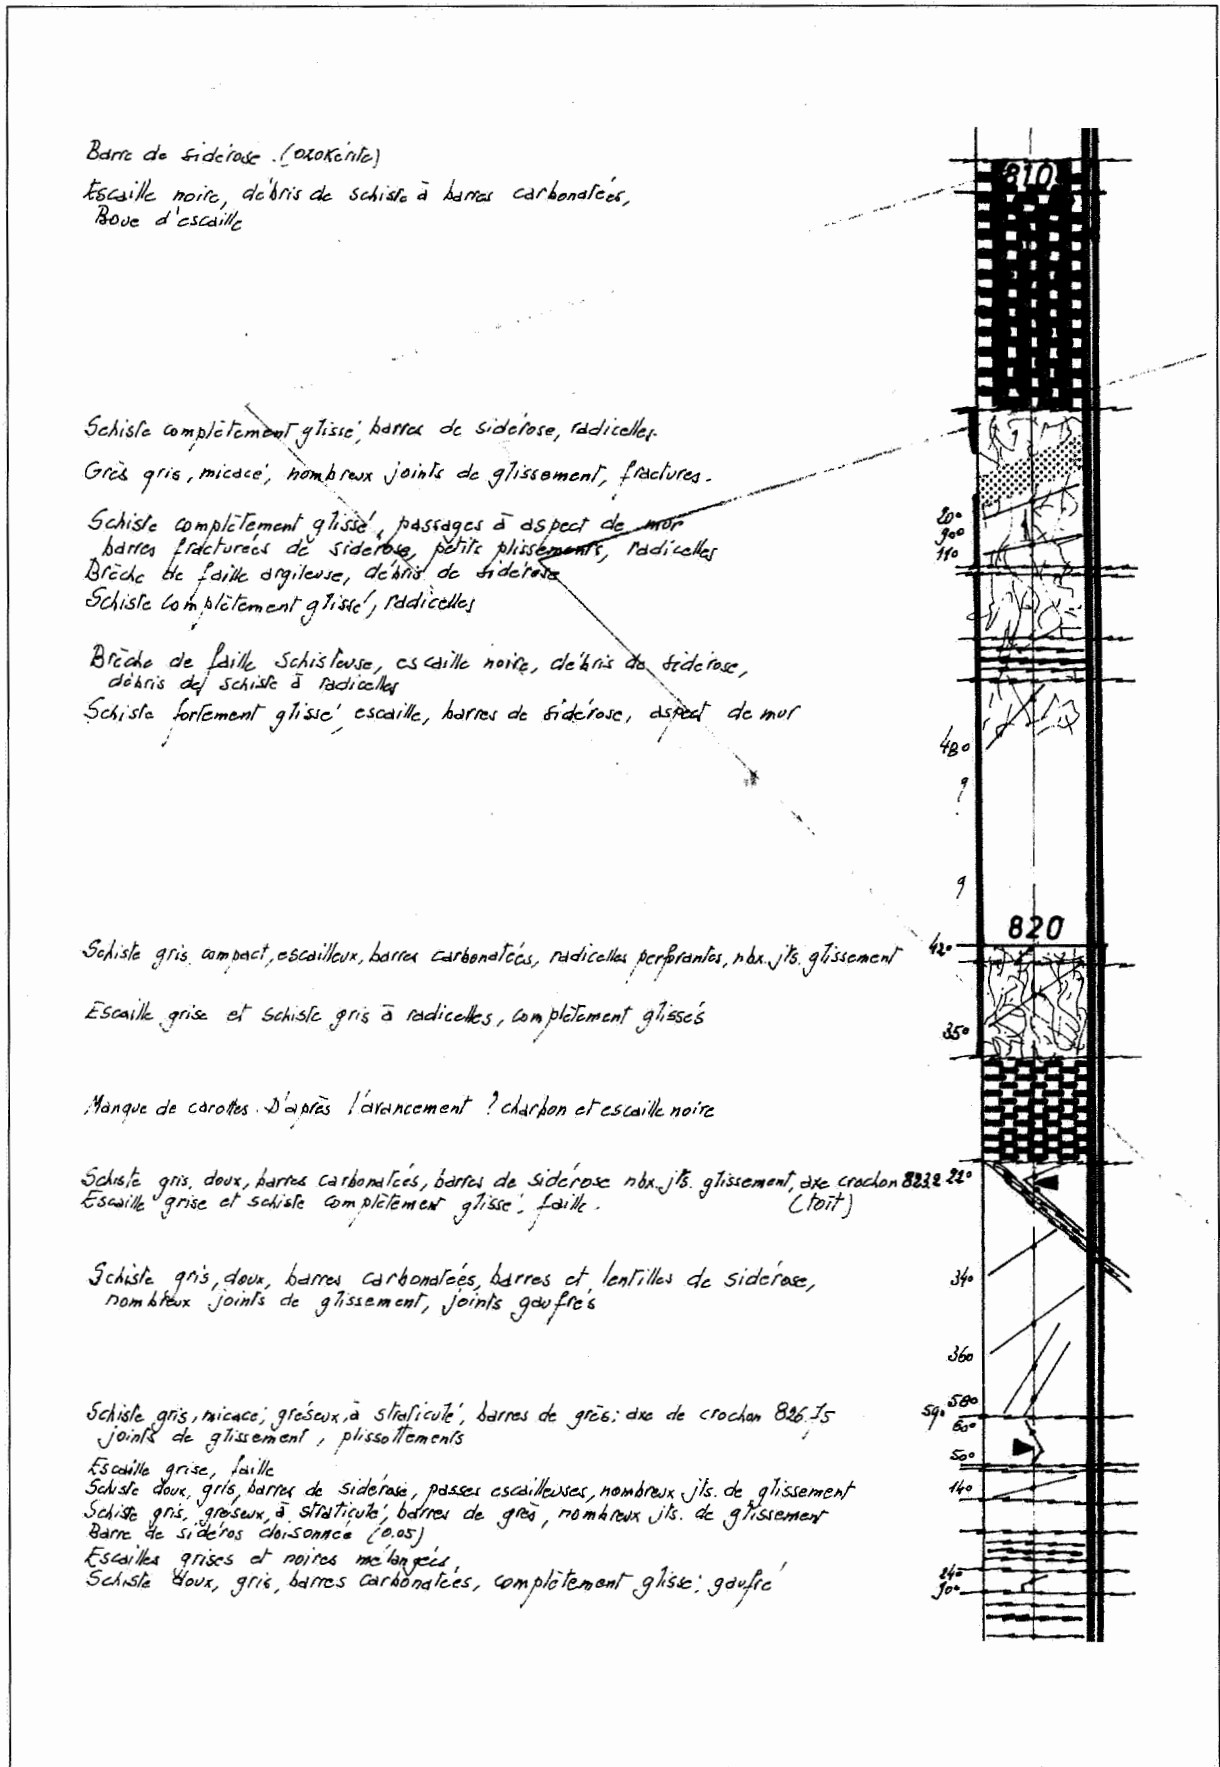 Barre de sidérose. (ozokérite)
810
Escaille noire, débris de schiste à barres carbonatées,
Boue d'escaille
Schiste complètement glissé, barres de sidérose, radicelles.
Grès gris, micacé, nombreux joints de glissement, fractures.
20°
Schiste complètement glissé, passages à aspect de mur
90°
barres fracturées de sidérose, petits plissements, radicelles
11°
Brèche de faille argileuse, débris de sidérose
Schiste complètement glissé, radicelles
Brèche de faille schisteuse, escaille noire, débris de sidérose,
débris de schiste à radicelles
Schiste fortement glissé, escaille, barres de sidérose, aspect de mur
48°
?
?
820
Schiste gris, compact, escailleux, barres carbonatées, radicelles perforantes, nbx. jts. glissement 42°
Escaille grise et schiste gris à radicelles, complètement glissés
35°
Manque de carottes. D'après l'avancement ? charbon et escaille noire
Schiste gris, doux, barres carbonatées, barres de sidérose nbx. jts. glissement, axe crochon 823.2 22°
Escaille grise et schiste complètement glissé, faille. (toit)
Schiste gris, doux, barres carbonatées, barres et lentilles de sidérose,
34°
nombreux joints de glissement, joints gaufrés
36°
58°
Schiste gris, micacé, gréseux, à straticulé, barres de grès; axe de crochon 826.75
59° 60°
joints de glissement, plissottements
50°
Escaille grise, faille
Schiste doux, gris, barres de sidérose, passes escailleuses, nombreux jts. de glissement
14°
Schiste gris, gréseux, à straticulé, barres de grès, nombreux jts. de glissement
Barre de sidéros cloisonnée (0.05)
Escailles grises et noires mélangées,
24°
Schiste doux, gris, barres carbonatées, complètement glissé, gaufré